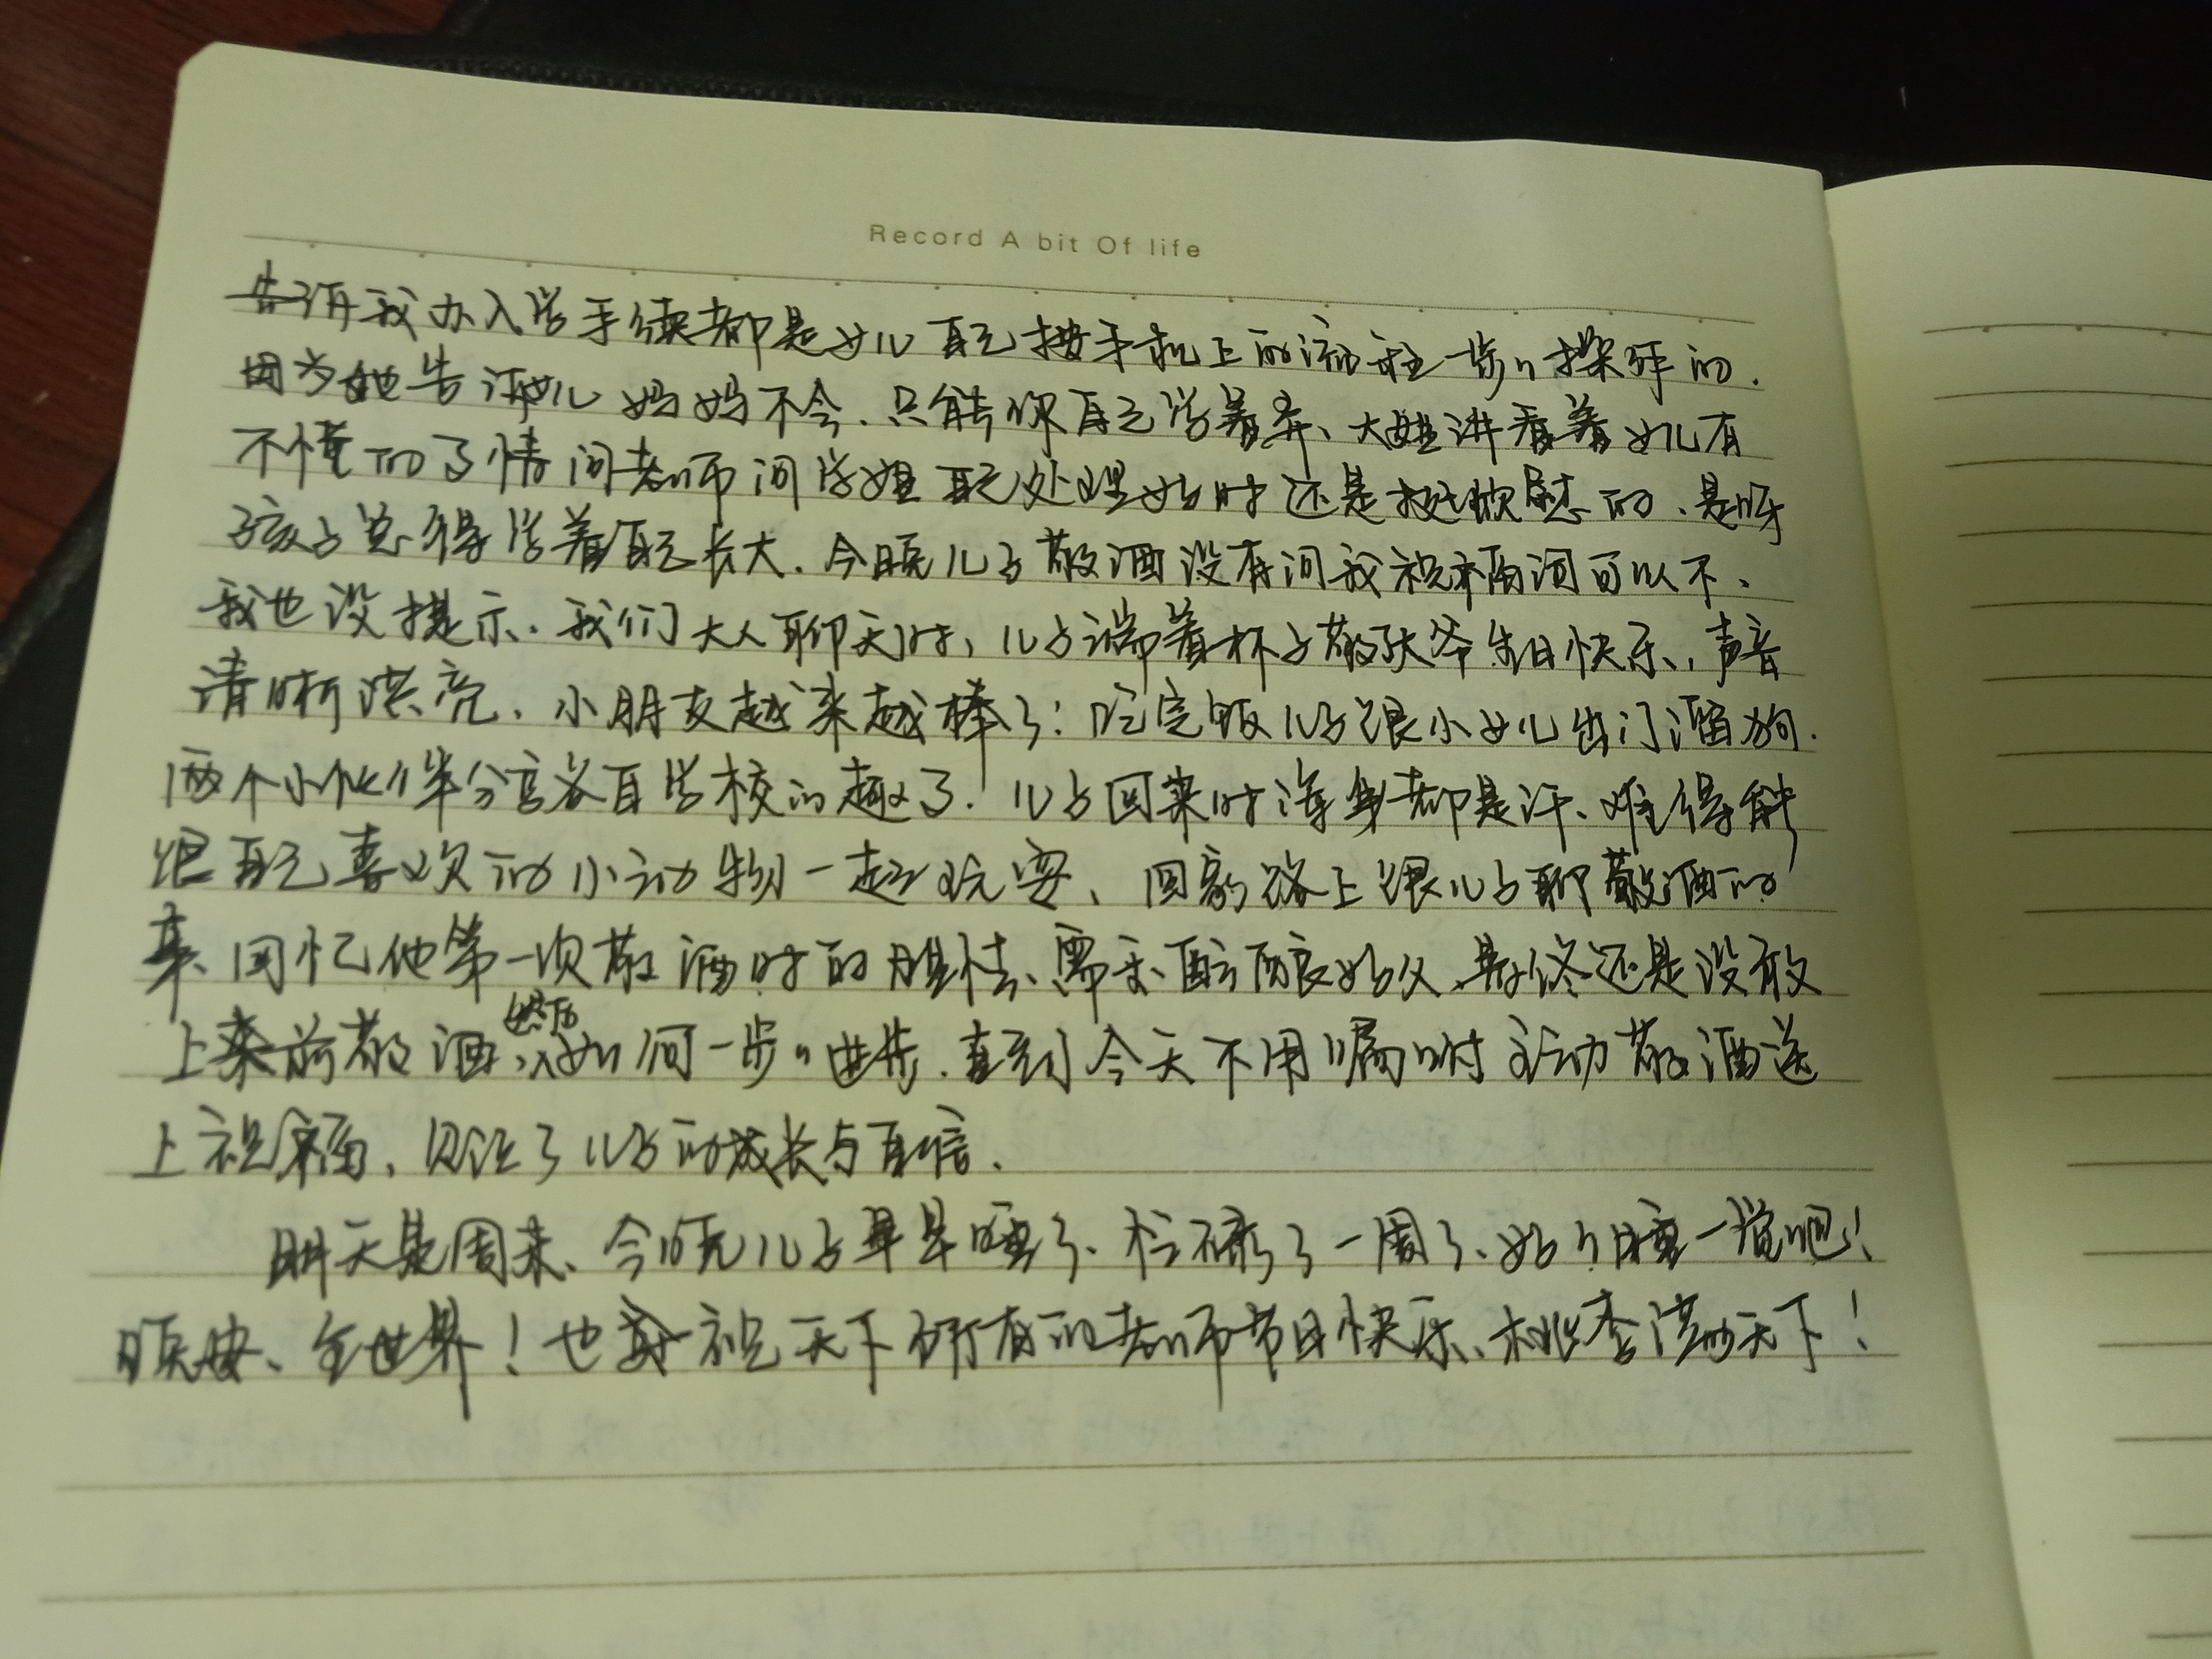 Record A bit Of life
告诉我办入学手续都是女儿自己按手机上的流程一步々操作的.
因为她告诉女儿妈妈不会.只能你自己学着弄、大姐讲看着女儿有
不懂的事情问老师问学姐自己处理好时还是挺欣慰的、是呀
孩子总得学着自己长大.今晚儿子敬酒没有问我祝福词可以不、
我也没提示.我们大人聊天时,儿子端着杯子敬张爷生日快乐,声音
清晰洪亮、小朋友越来越棒了!吃完饭儿子跟小女儿出门遛狗.
两个小伙伴分享各自学校的趣事.儿子回来时浑身都是汗、难得能
跟自己喜欢的小动物一起玩耍、回家路上跟儿子聊敬酒的
事、回忆他第一次敬酒时的胆怯、需要酝酿好久、最终还是没敢
上来前敬酒,然后如何一步々进步.直到今天不用嘱咐主动敬酒送
上祝福、见证了儿子的成长与自信.
明天是周末、今晚儿子早早睡了、忙碌了一周了、好々睡一觉吧!
晚安、全世界!也祝天下所有的老师节日快乐、桃李满天下!